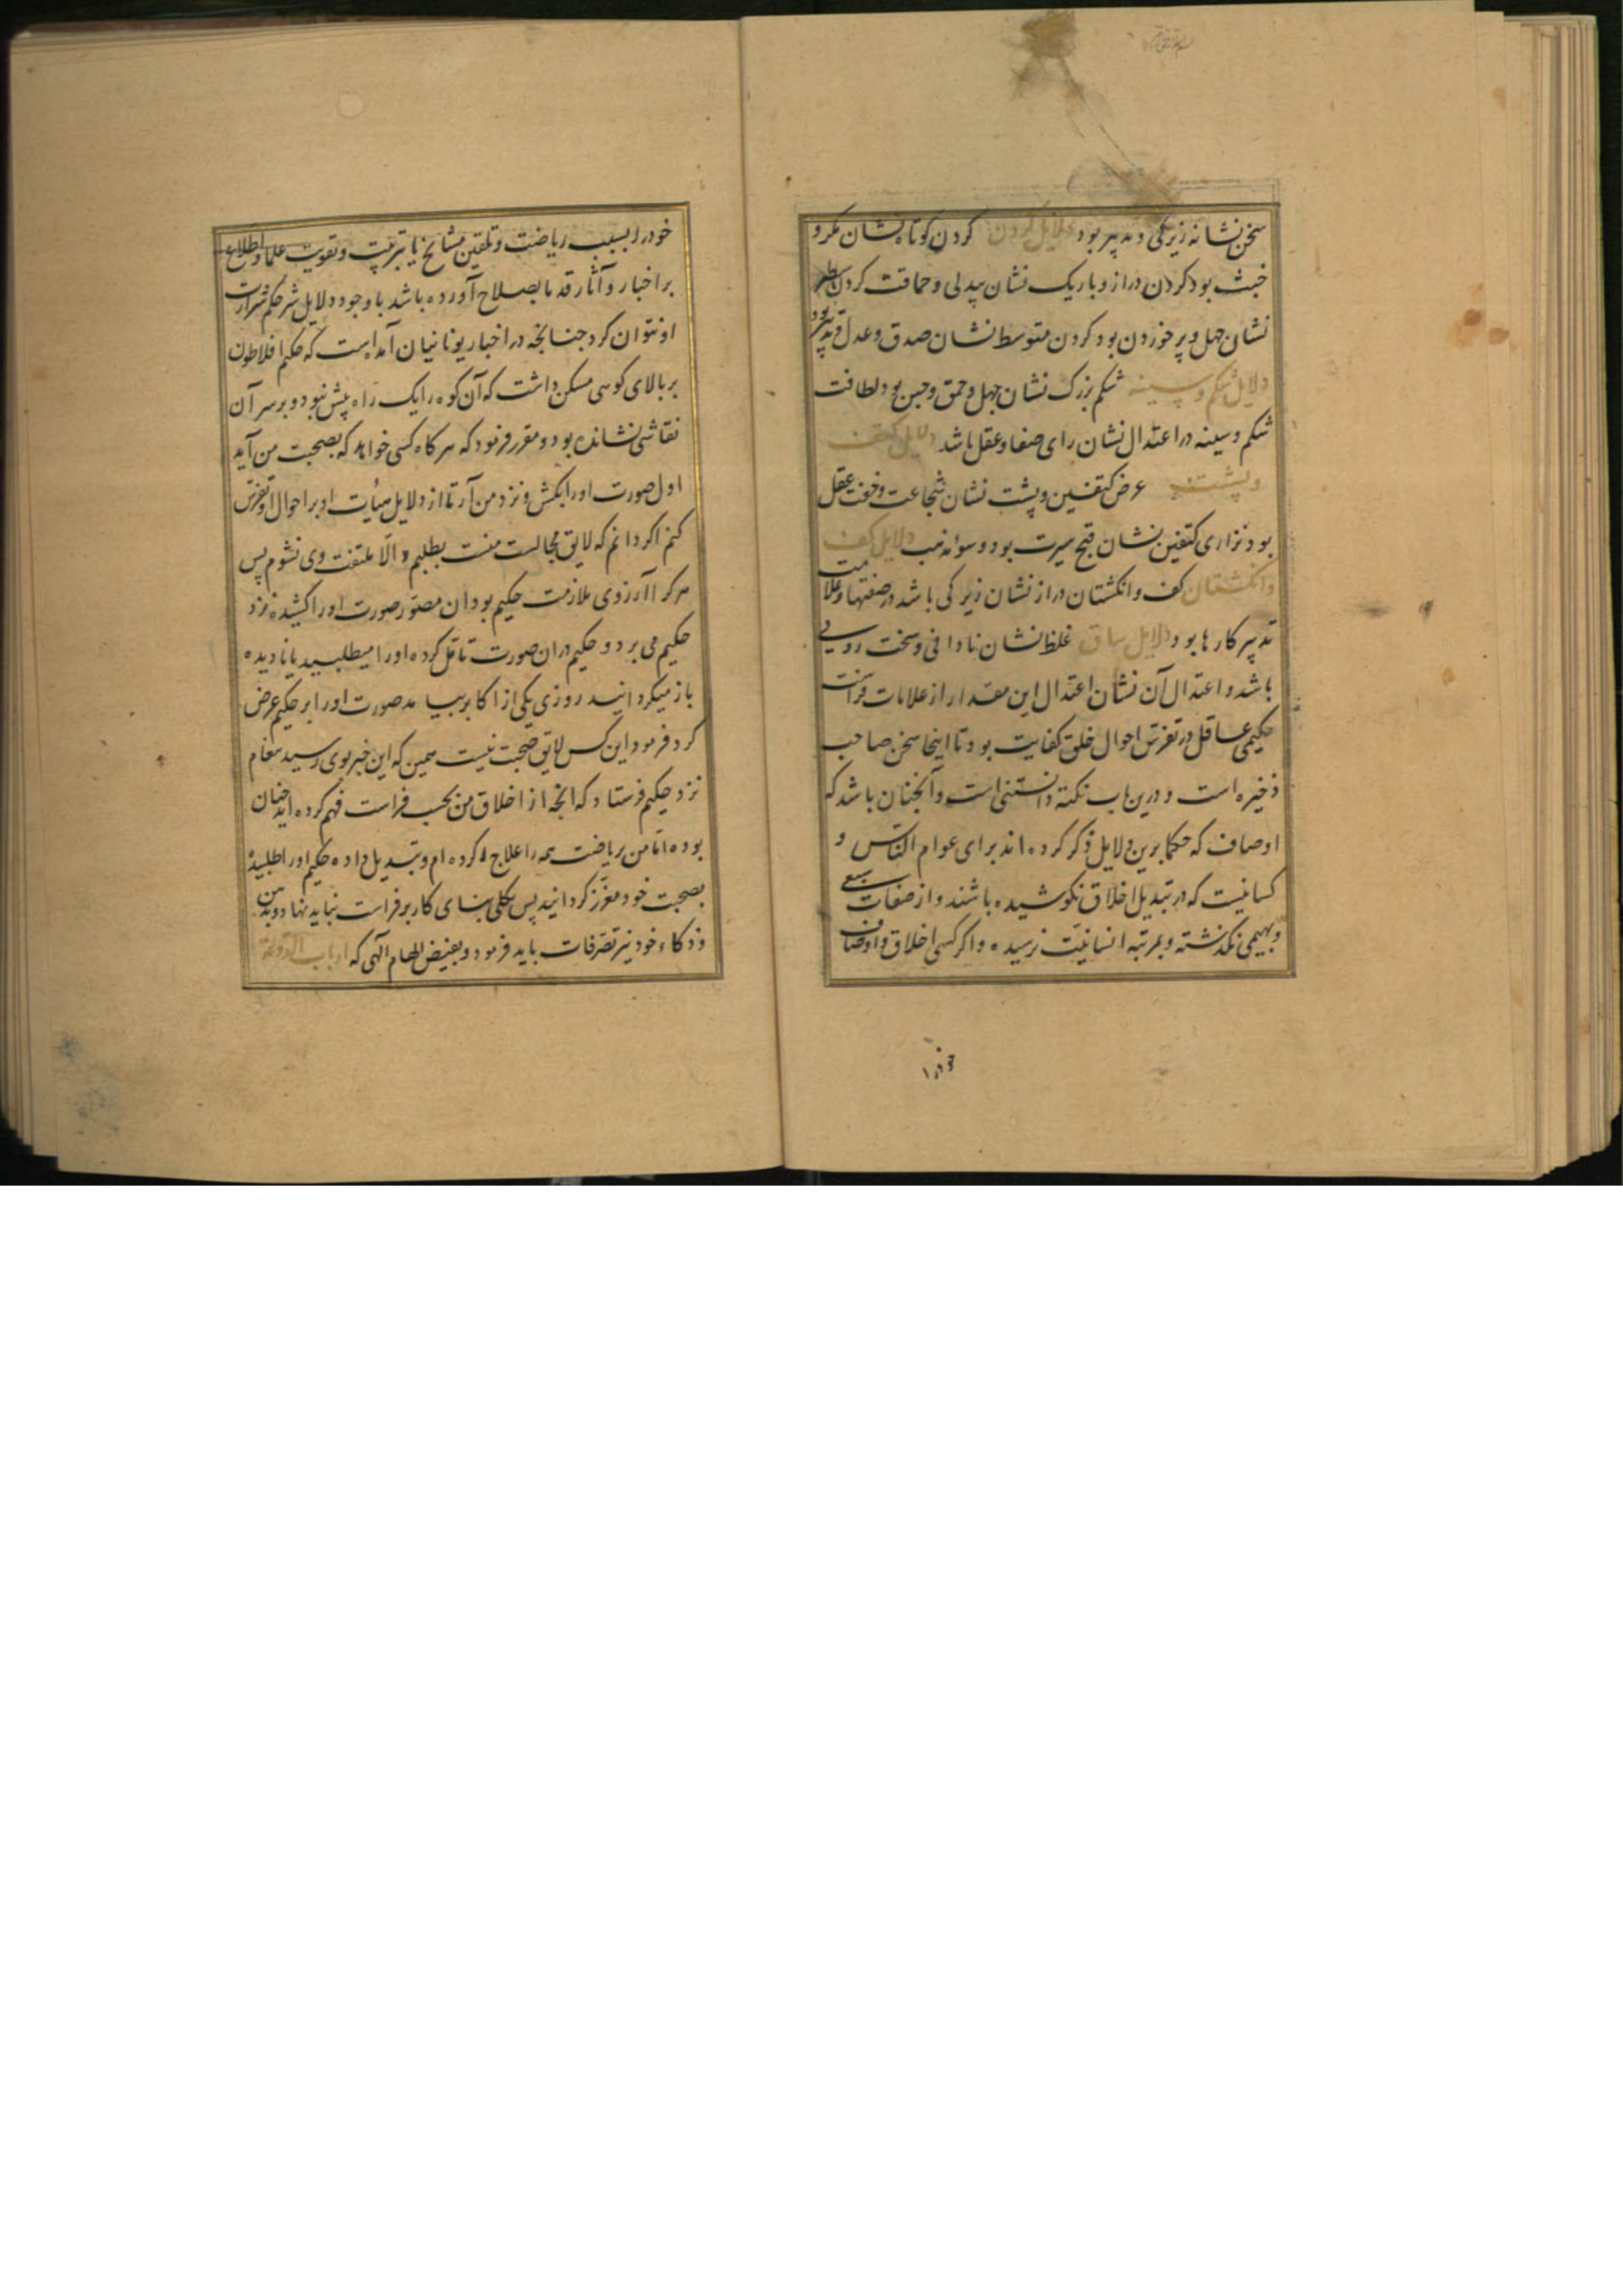 سخن نشانه زیرکی و تدبیر بود دلایل گردن گردن کوتاه نشان مکر و
خبث بود گردن دراز و باریک نشان بیدلی و حماقت گردن سطبر
نشان جهل و پر خوردن بود گردن متوسط نشان صدق و عدل و تدبیر بود
دلایل شکم و سینه شکم بزرگ نشان جهل و حمق و جبن بود لطافت
شکم و سینه در اعتدال نشان رای صفا و عقل باشد دلایل کتف
و پشت عرض کتفین و پشت نشان شجاعت و خفت عقل
بود نزاری کتفین نشان قبح سیرت بود و سوء مذهب دلایل کف
و انکشتان کف و انکشتان دراز نشان زیرکی باشد در صنعتها و علامت
تدبیر کارها بود دلایل ساق غلظ نشان نادانی و سخت رویی
باشد و اعتدال آن نشان اعتدال این مقدار از علامات فراست
حکیمی عاقل در تفرس احوال خلق کفایت بود تا اینجا سخن صاحب
ذخیره است و درین باب نکته دانستنی است و آنچنان باشد که
اوصاف که حکما برین دلایل ذکر کرده اند برای عوام الناس و
کسانیست که در تبدیل اخلاق نکوشیده باشند و از صفات سبعی
و بهیمی نگذشته و بمرتبه انسانیت نرسیده و اگر کسی اخلاق و اوصاف
خود را بسبب ریاضت و تلقین مشایخ یا بتربیت و تقویت علما و اطلاع
بر اخبار و آثار قدما بصلاح آورده باشد با وجود دلایل شر حکم شرارت
او نتوان کرد جنانجه در اخبار یونانیان آمده است که حکیم افلاطون
بر بالای کوهی مسکن داشت که آن کوه را یک راه بیش نبود و بر سر آن
نقاشی نشانده بود و مقرر فرمود که هر کاه کسی خواهد که بصحبت من آید
اول صورت او را بکش و نزد من آر تا از دلایل هیأت او بر احوال او تفرس
کنم اکر دانم که لایق مجالست منست بطلبم و الّا ملتفت وی نشوم پس
هر کرا آرزوی ملازمت حکیم بود آن مصوّر صورت او را کشیده نزد
حکیم می برد و حکیم در آن صورت تأمّل کرده او را میطلبید یا نادیده
باز میکردانید روزی یکی از اکابر بیامد صورت او را بر حکیم عرض
کرد فرمود این کس لایق صحبت نیست همین که این خبر بوی رسید پیغام
نزد حکیم فرستاد که انجه از اخلاق من بحسب فراست فهم کرده اید چنان
بوده امّا من بریاضت همه را علاج کرده ام و تبدیل داده حکیم او را طلبیده
بصحبت خود معزّز کردانید پس بکلی بنای کار بر فراست نباید نهاد و بذهن
و ذکاء خود نیز تصرّفات باید فرمود و بفیض الهام آلهی که ارباب الدولة